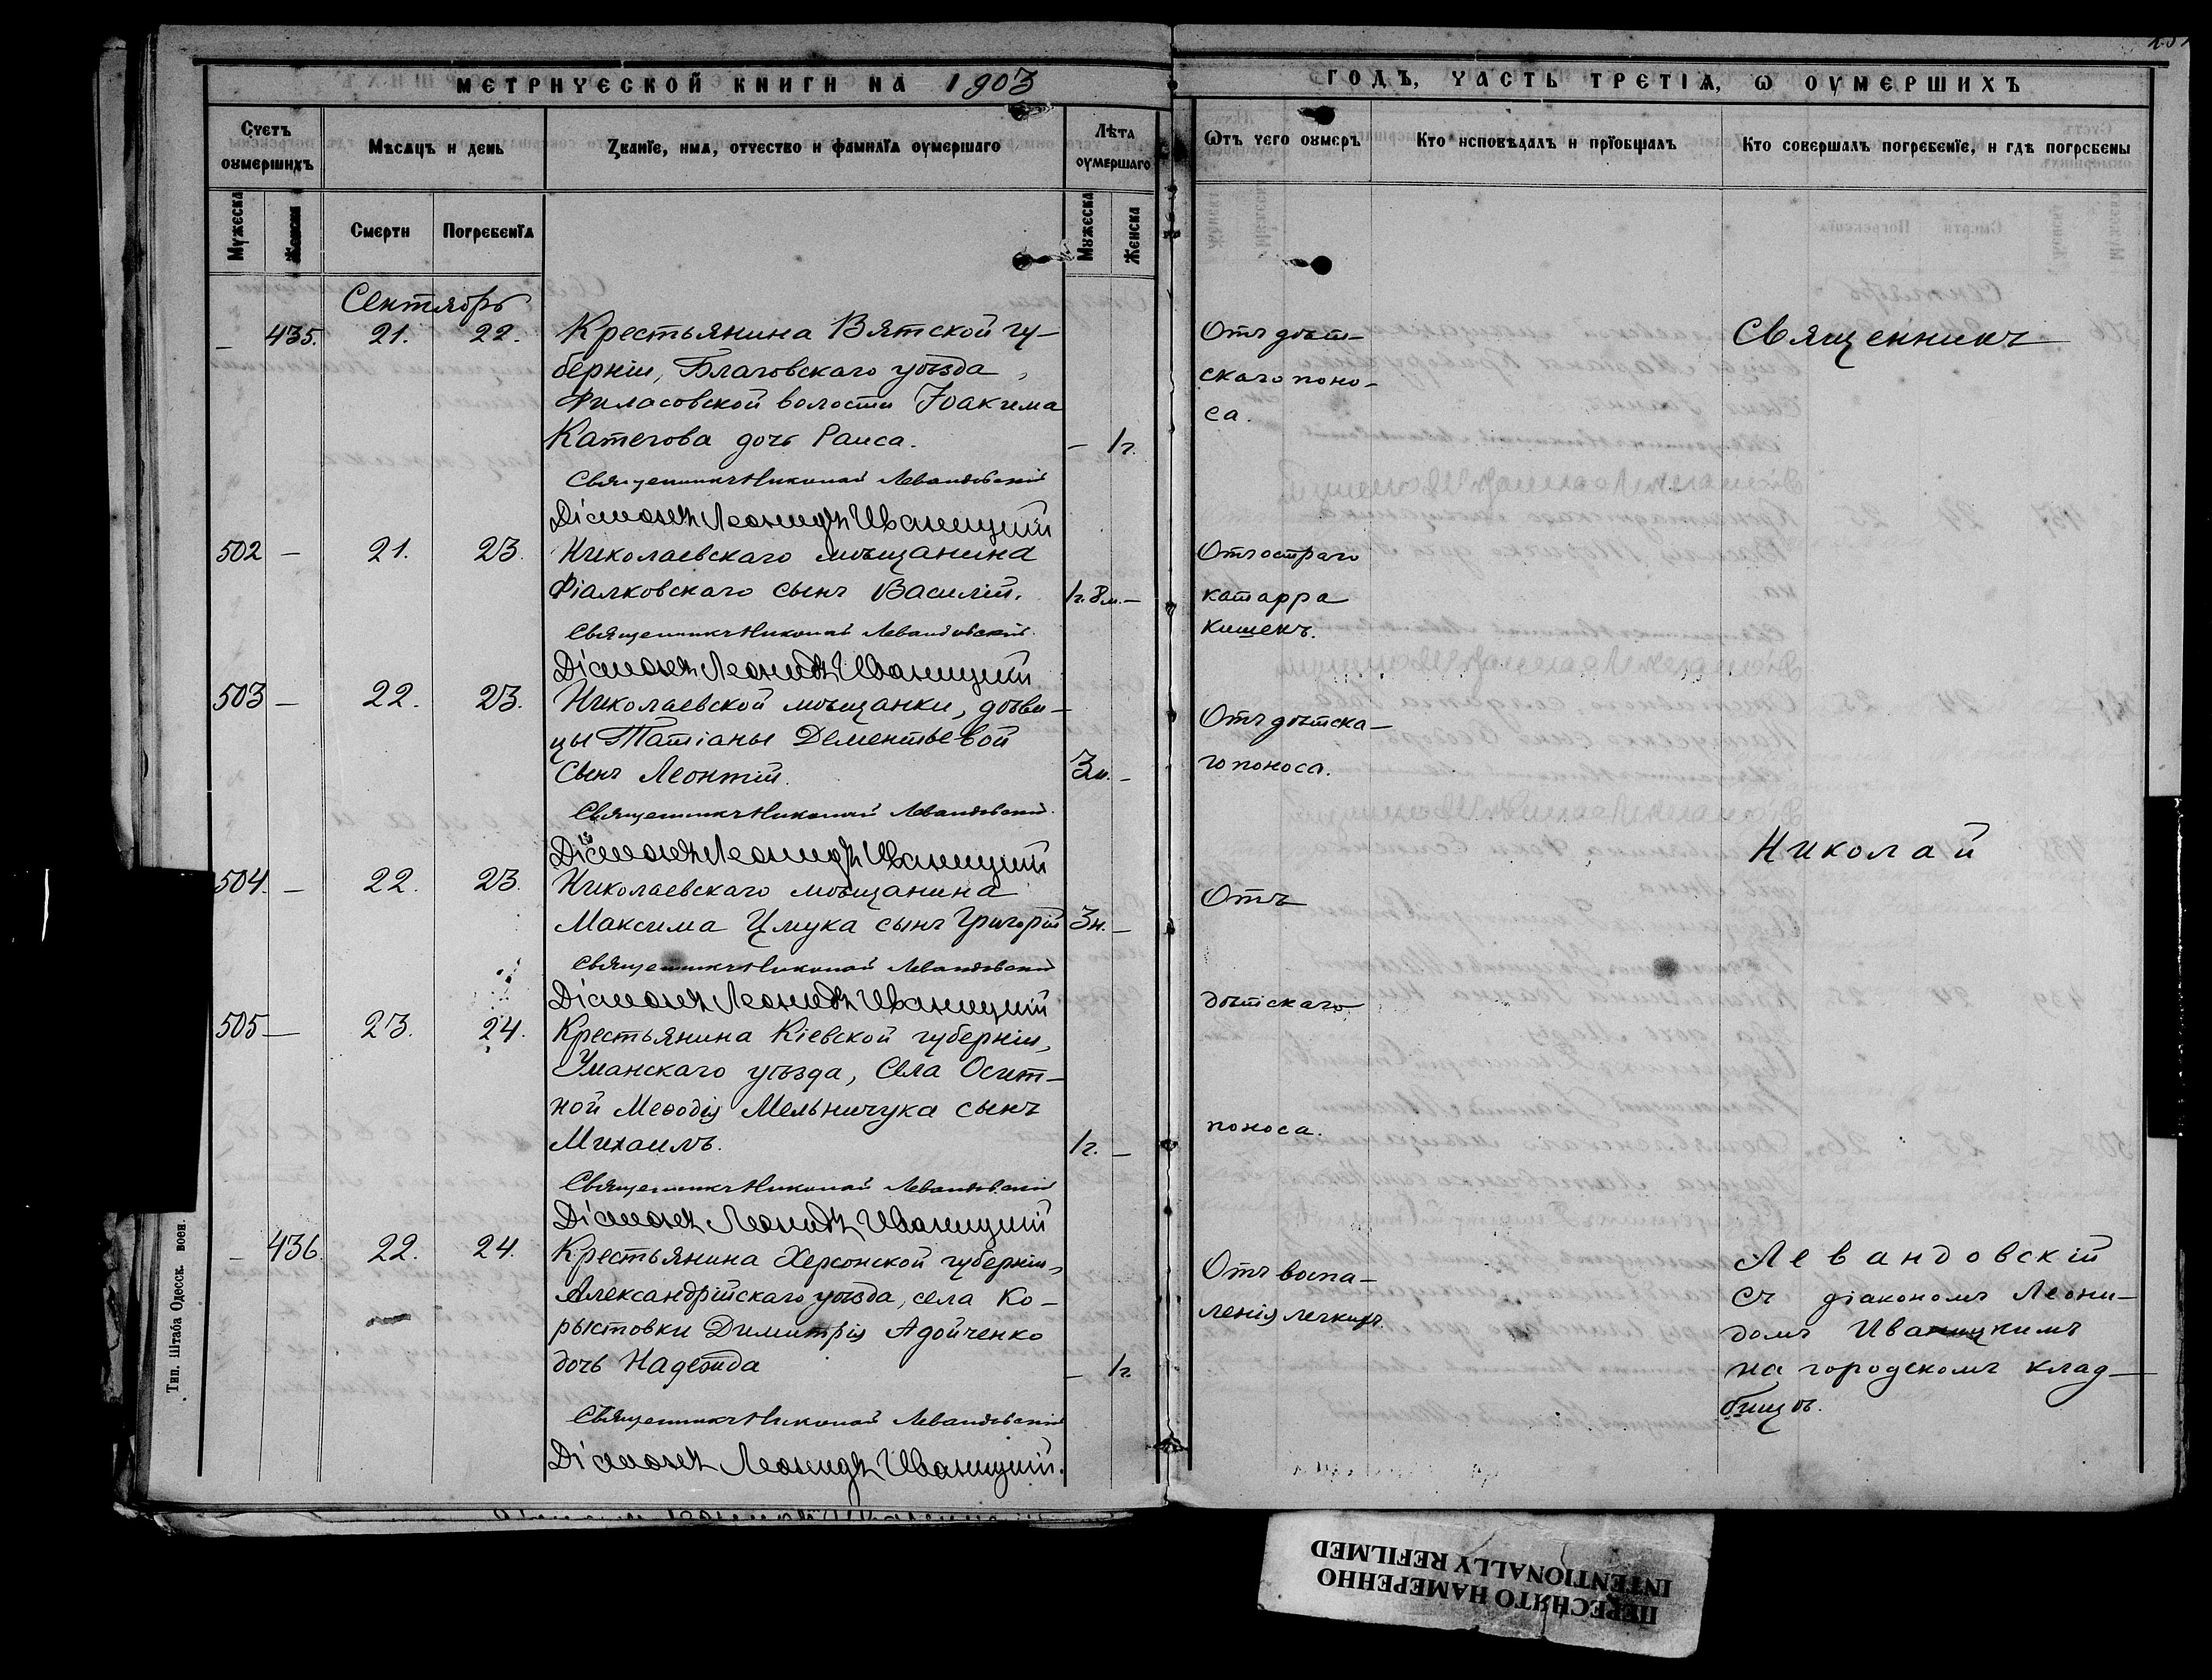 МЕТРИЧЕСКОЙ КНИГИ НА 1903
ГОДЪ, ЧАСТЬ ТРЕТІѦ, Ѡ ОУМЕРШИХЪ
Счетъ оумершихъ
Мѣсѧцъ и день
Званїе, имѧ, отчество и фамилїѧ оумершаго
Лѣта оумершаго
Ѡтъ чего оумеръ
Кто исповѣдалъ и прїобщалъ
Кто совершалъ погребенїе, и гдѣ погребены
Мужеска
Женска
Смерти
Погребенїѧ
Мужеска
Женска
Сентябрь
– 435. 21. 22. Крестьянина Вятской гу-
берніи, Благовскаго уѣзда,
Филасовской волости Іоакима
Категова дочь Раиса. – 1 г.
Священникъ Николай Левандовскій
Діаконъ Леонидъ Иваницкій
Отъ дѣт-
скаго поно-
са.
502 – 21. 23. Николаевскаго мѣщанина
Фіалковскаго сынъ Василій. 1 г. 8 м. –
Священникъ Николай Левандовскій
Діаконъ Леонидъ Иваницкій
Отъ остраго
катарра
кишекъ.
503 – 22. 23. Николаевской мѣщанки, дѣви-
цы Татіаны Дементьевой
сынъ Леонтій. 3 м. –
Священникъ Николай Левандовскій
Діаконъ Леонидъ Иваницкій
Отъ дѣтска-
го поноса.
504. – 22. 23. Николаевскаго мѣщанина
Максима Цмука сынъ Григорій 3 н. –
Священникъ Николай Левандовскій
Діаконъ Леонидъ Иваницкій
Отъ
505 – 23. 24. Крестьянина Кіевской губерніи,
Уманскаго уѣзда, Села Осит-
ной Меѳодія Мельничука сынъ
Михаилъ. 1 г. –
Священникъ Николай Левандовскій
Діаконъ Леонидъ Иваницкій
дѣтскаго
поноса.
– 436. 22. 24. Крестьянина Херсонской губерніи,
Александрійскаго уѣзда, села Ко-
рыстовки Димитрія Адойченко
дочь Надежда – 1 г.
Священникъ Николай Левандовскій
Діаконъ Леонидъ Иваницкій.
Отъ воспа-
ленія легкихъ.
Священникъ
Николай
Левандовскій
съ діакономъ Леони-
домъ Иваницкимъ
на городскомъ клад-
бищѣ.
Тип. Штаба Одесск. воен.
ПЕРЕСНЯТО НАМЕРЕННО
INTENTIONALLY REFILMED